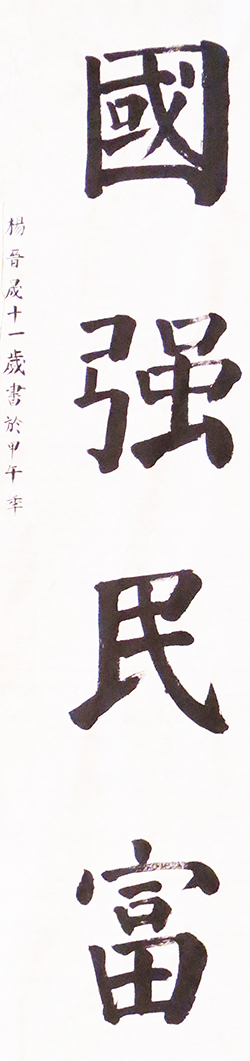 國强民富
楊晉成十一歲書於甲午年